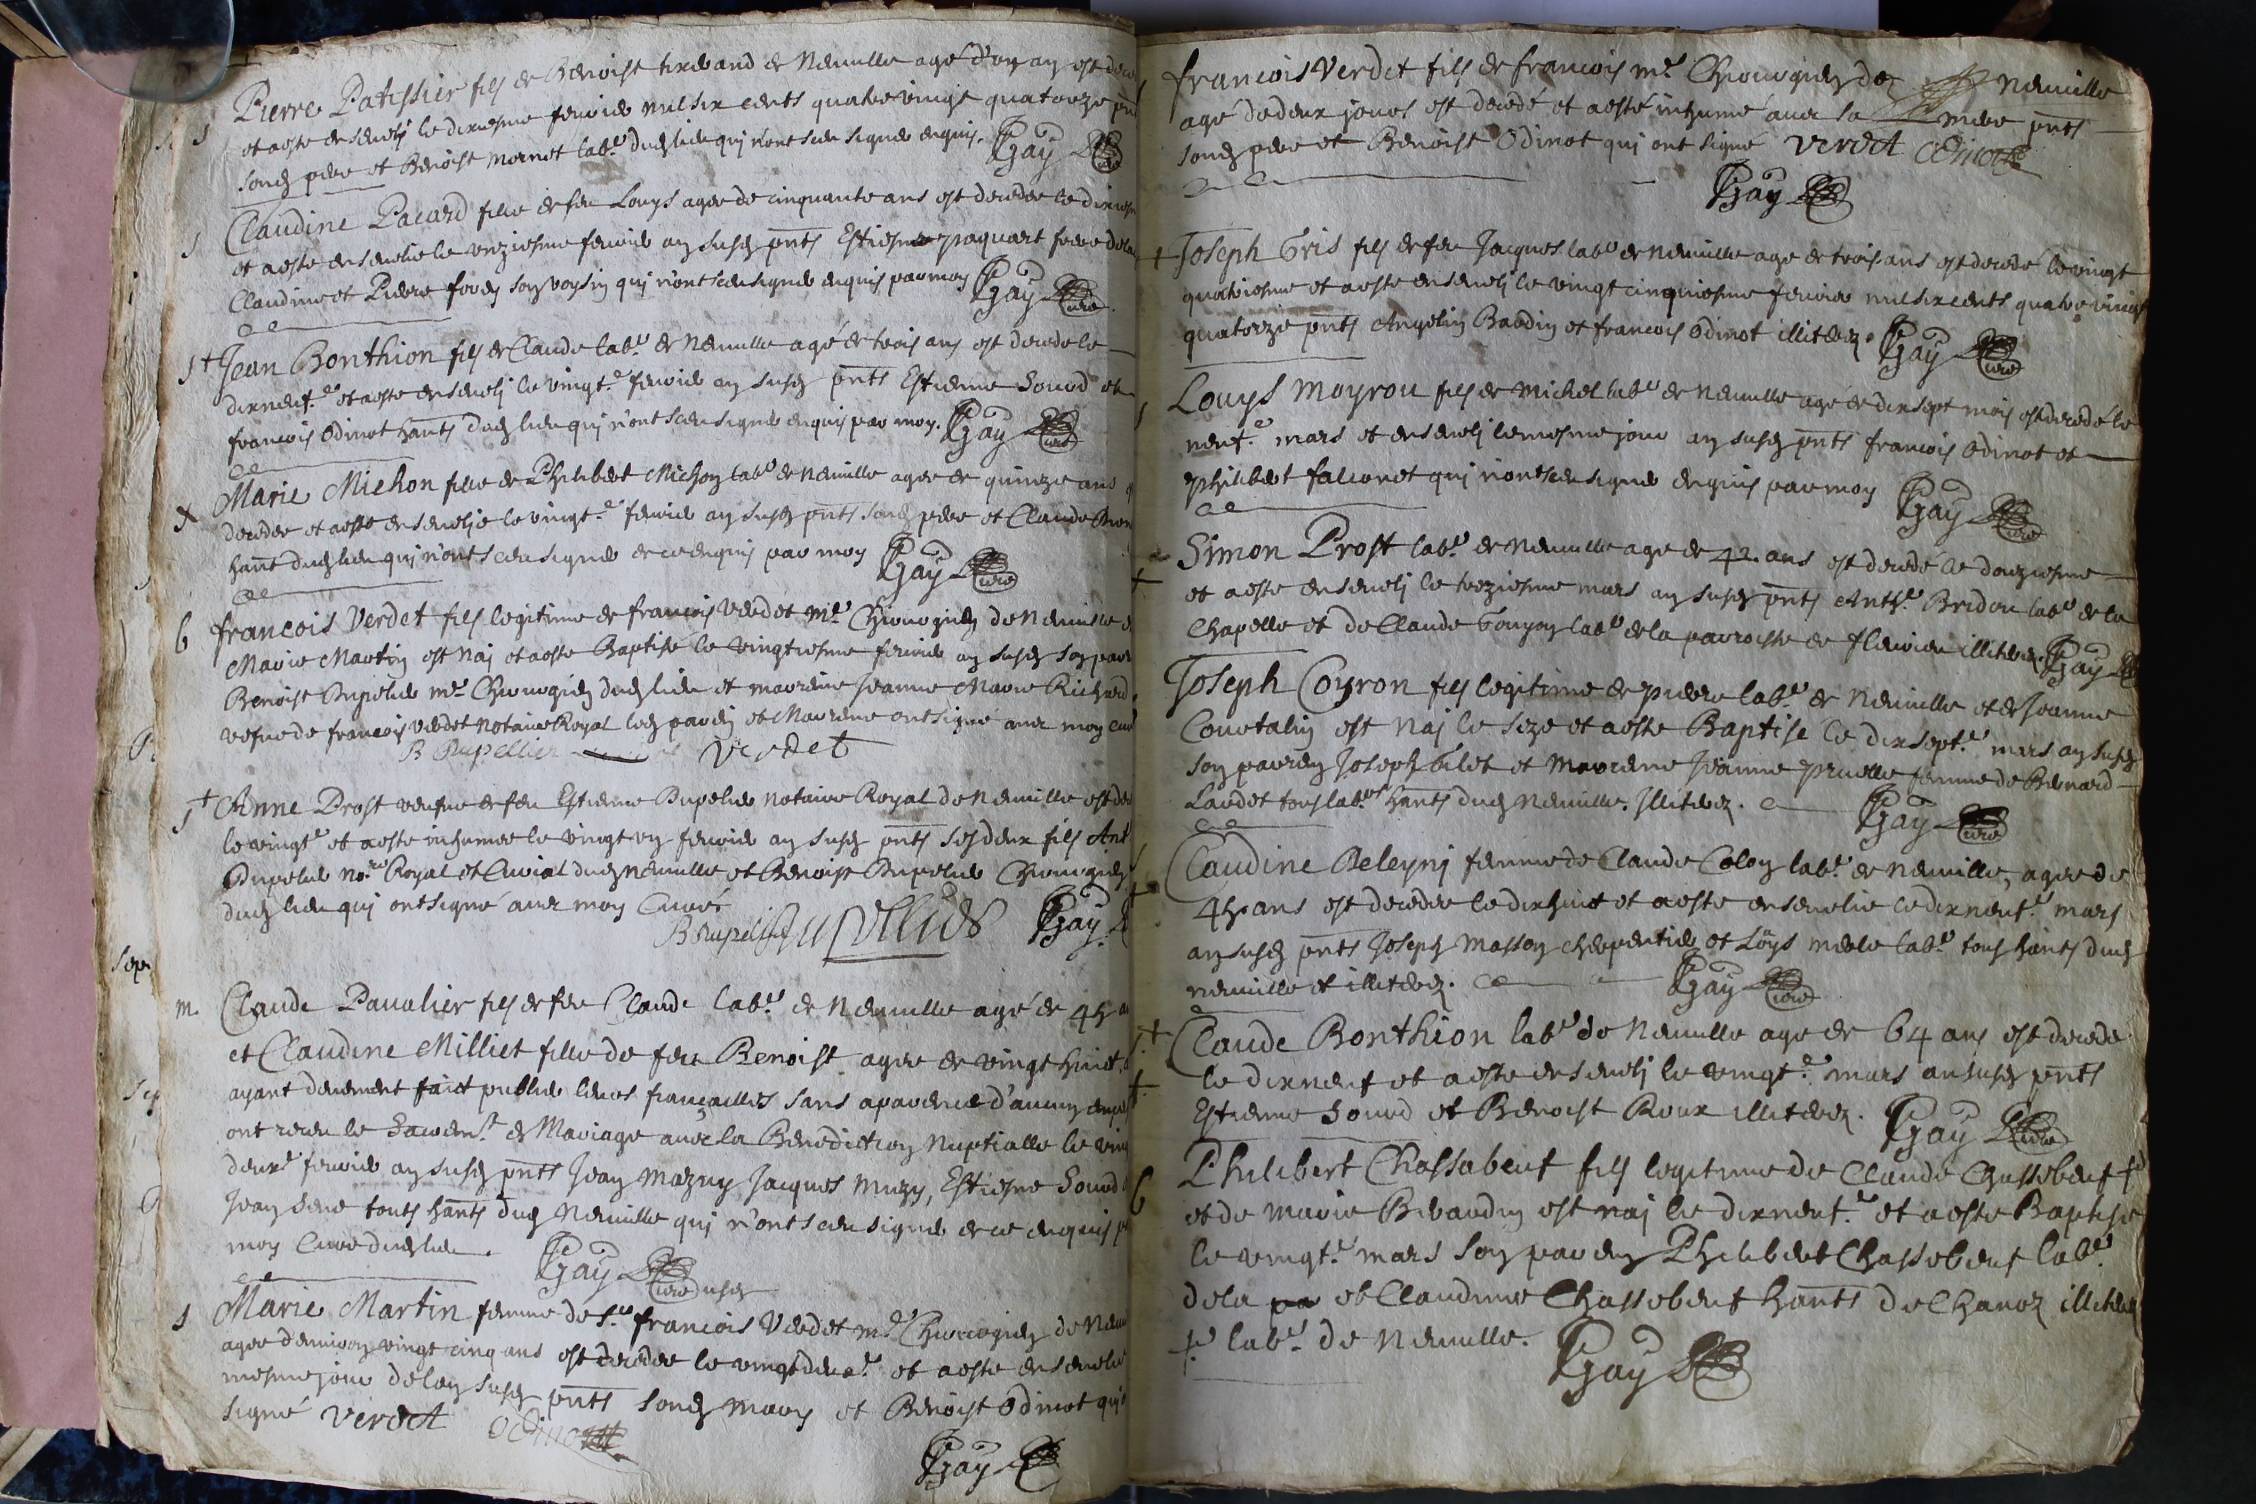 Pierre Patissier fils de Benoist tixerand de Neuville agé d'un an est
et a esté ensevely le dixiesme fevrier mil six cents quatre vingt quatorze pnts
sond pere et Benoist mornet labr dud lieu qui n'ont sceu signer enquis. Gay curé
Claudine Pacard fille de feu Louys agee de cinquante ans est decedee le dixiesme
et a esté ensevelie le unziesme fevrier an susd pnts Estienne paquart frere de la
Claudine et Pierre son voysin qui n'ont sceu signer enquis par moy Gay curé
Jean Bonthion fils de Claude labr de Neuville agé de trois ans est decedé le
dixneufe et a esté ensevely le vingte fevrier an susd pnts Estienne Sourd et
francois Odinot hants dud lieu qui n'ont sceu signer enquis par moy. Gay curé
Marie Michon fille de Philibert Michon labr de Neuville agee de quinze ans
decedee et a esté ensevelie le vingte fevrier an susd pnts sond pere et Claude
hant dud lieu qui n'ont sceu signer de ce enquis par moy Gay curé
b francois Verdet fils legitime de francois Verdet mre Chirurgien de Neuville
Marie Martin est naj et a esté Baptisé le vingtiesme fevrier an susd son parr
Benoist Dupelier mre Chirurgien dud lieu et marreine Jeanne Marie Richard
vefue de francois Verdet notaire Royal led parein et Marrene ont signé avec moy curé
B Dupellier Verdet
Anne Prost veufue de feu Estienne Dupelier notaire Royal de Neuville est
le vingte et a esté inhumee le vingt un fevrier an susd pnts ses deux fils Ant
Dupelier nore Royal et Curial dud Neuville et Benoist Dupelier Chirurgien
dud lieu qui ont signé avec moy Curé
B Dupellier Gay
m. Claude Pavalier fils de feu Claude labr de Neuville agé de
et Claudine Milliet fille de feu Benoist agee de vingt huict
ayant deuement faict publier leurs fiançailles sans aparence d'aucun
ont receu le Sacremt de Mariage avec la Benediction Nuptialle le vingt
deuxe fevrier an susd pnts Jean Mazuy Jacques Muzy, Estienne Sourd
Jean touts hants dud Neuville qui n'ont sceu signer de ce enquis
moy Curé dud lieu. Gay curé susd
Marie Martin femme de Sr francois Verdet mre Chirurgien de
agee d'environ vingt cinq ans est decedee le vingtdeuxe et a esté ensevelie
mesme jour de l'an susd pnts sond mary et Benoist Odinot qui
signé Verdet Odinot
Gay
francois Verdet fils de francois mre Chirurgien de Neuville
agé de deux jours est decedé et a esté inhumé avec sa mere pnts
sond pere et Benoist Odinot qui ont signé Verdet Odinot
Gay curé
Joseph Gris fils de feu Jacques labr de Neuville agé de trois ans est decedé le vingt
quatriesme et a esté ensevely le vingt cinquiesme fevrier mil six cents quatre vingt
quatorze pnts Angelin Baudin et francois Odinot illiterez. Gay curé
Louys Moyrou fils de Michel labr de Neuville agé de dixsept mois est decedé le
neufe mars et ensevely le mesme jour an susd pnts francois Odinot et
Philibert falconet qui n'ont sceu signer enquis par moy Gay curé
Simon Prost labr de Neuville agé de 42 ans est decedé le douziesme
et a esté ensevely le treziesme mars an susd pnts Anthe Bridon labr de la
Chapelle et de Claude Gouyon labr de la parroisse de fleurieu illiterez. Gay
Joseph Coyron fils legitime de pierre labr de Neuville et de Jeanne
Courtalin est naj le seze et a esté Baptisé le dixsepte mars an susd
son parrein Joseph Gilet et marrene Jeanne pruelle femme de Bernard
Laudet tous labrs hants dud Neuville. Illiterez. Gay curé
Claudine Releyni femme de Claude Colon labr de Neuville, agee de
45 ans est decedee le dixhuit et a esté ensevelie le dixneufe mars
an susd pnts Joseph Masson cherpentier et Loys merle labr tous hants dud
Neuville et illiterez. Gay curé
Claude Bonthion labr de Neuville agé de 64 ans est decedé
le dixneuf et a esté ensevely le vingte mars an susd pnts
Estienne Sourd et Benoist Roux illiterez. Gay curé
b Philibert Chassabeuf fils legitime de Claude Chassebeuf
et de Marie Bivaudin est naj le dixneufe et a esté Baptisé
le vingte mars son parein Philibert Chassebeuf labr
de la pa et Claudine Chassebeuf hants de Chanoz illiterez
labr de Neuville. Gay